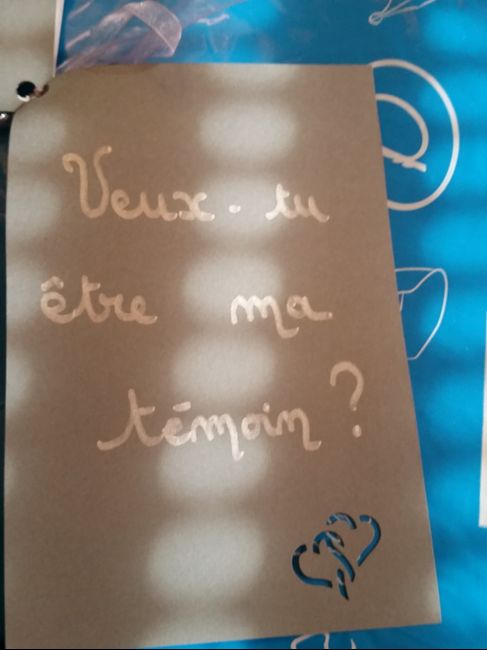 Veux-tu
être ma
témoin ?